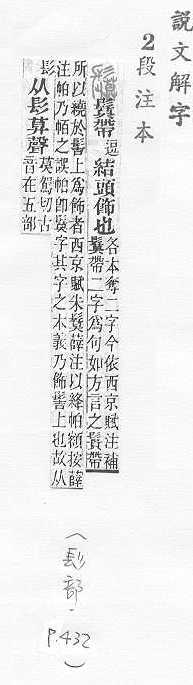 說文解字
2段注本
鬕帶逗結頭飾也各本奪二字今依西京賦注補
鬕帶二字為句如方言之鬢帶
所以繞於髻上爲飾者西京賦朱鬕薛注以絳帕額按薛
注帕乃帞之誤帞卽鬕字其字之本義乃飾髻上也故从
髟从髟莫聲莫駕切古
音在五部
(髟部.
P.432)